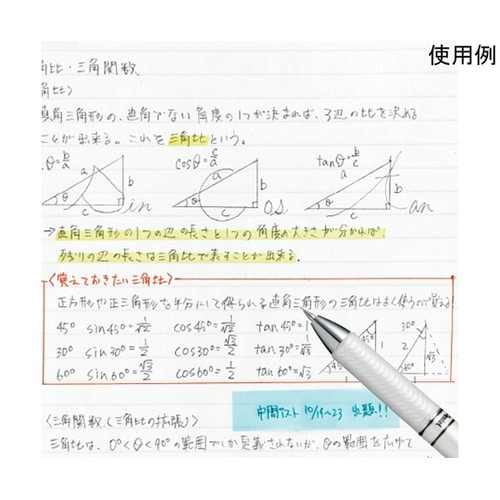 使用例
角比・三角関数
角比〉
直角三角形の、直角でない角度の1つが決まれば、3辺の比を決める
ことが出来る。これを三角比という。
θ=b/a cosθ=c/a tanθ=b/c
a b c θ in
a b c θ os
a b c θ an
→直角三角形の1つの辺の長さと1つの角度の大きさが分かれば、
残りの辺の長さは三角比で表すことが出来る。
〈覚えておきたい三角比〉
正方形や正三角形を半分にして得られる直角三角形の三角比はよく使うので覚える!
45° sin45°=1/√2 cos45°=1/√2 tan45°=1
30° sin30°=1/2 cos30°=√3/2 tan30°=1/√3
60° sin60°=√3/2 cos60°=1/2 tan60°=√3
30° 2 √3
中間テスト 10/19~23 出題!!
〈三角関数(三角比の拡張)〉
三角比は、0°<θ<90°の範囲でしか定義されないが、θの範囲を広げて